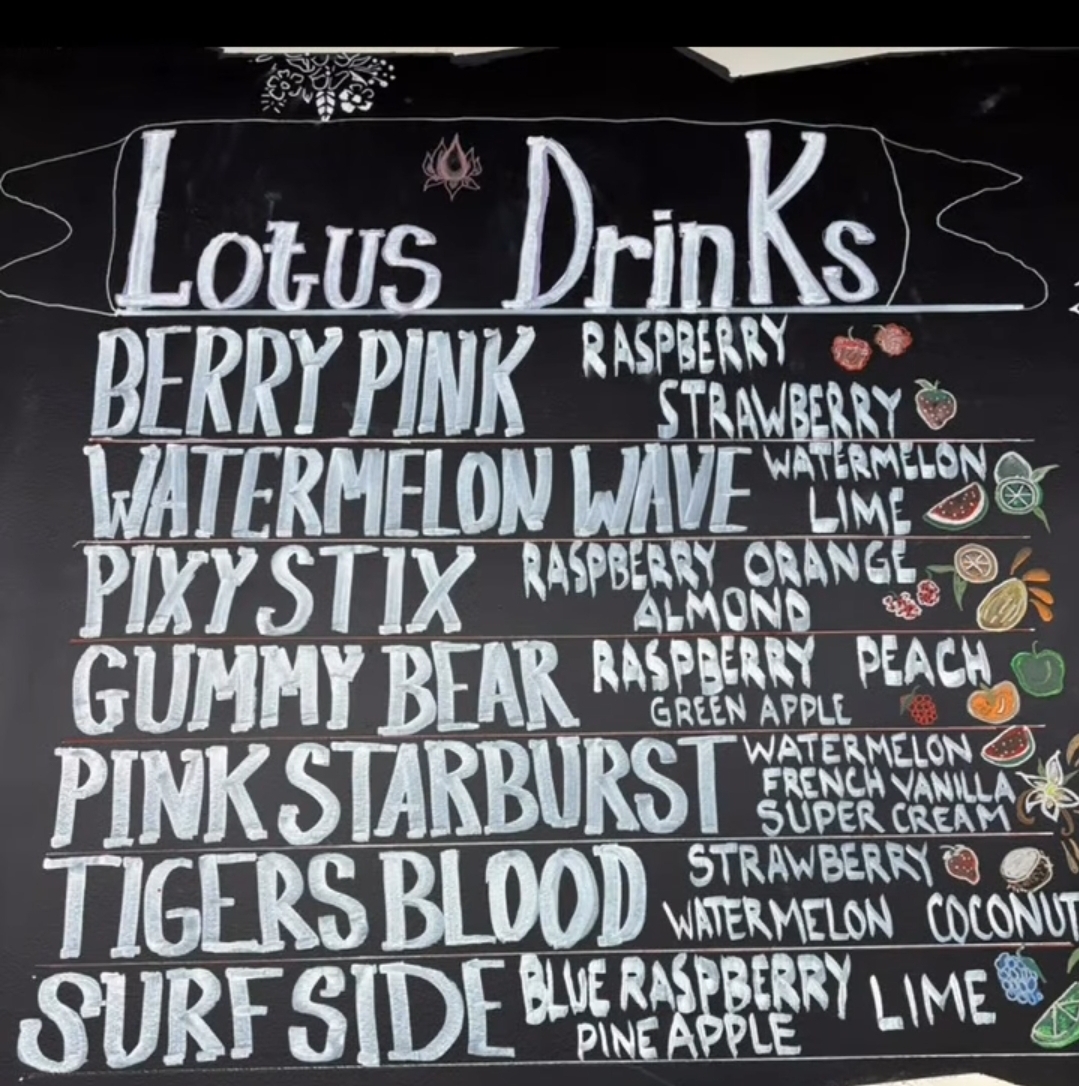 Lotus DrinKs
BERRY PINK RASPBERRY
STRAWBERRY
WATERMELON WAVE WATERMELON
LIME
PIXY STIX RASPBERRY ORANGE
ALMOND
GUMMY BEAR RASPBERRY PEACH
GREEN APPLE
PINK STARBURST WATERMELON
FRENCH VANILLA
SUPER CREAM
TIGERS BLOOD STRAWBERRY
WATERMELON COCONUT
SURF SIDE BLUE RASPBERRY LIME
PINEAPPLE